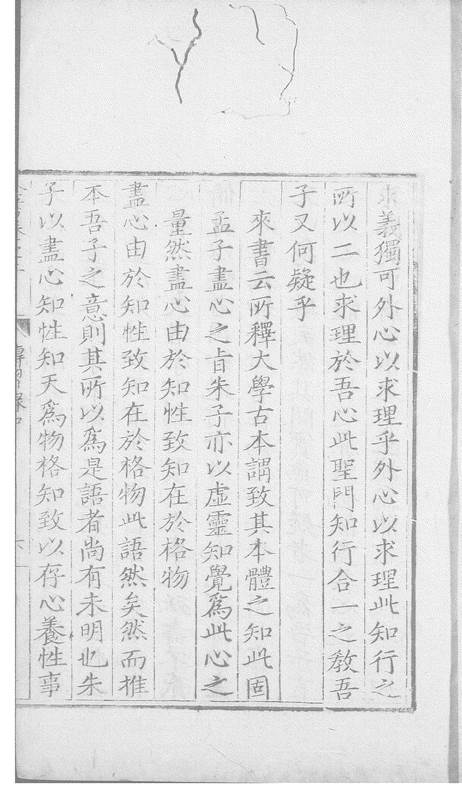 求義獨可外心以求理乎外心以求理此知行之
所以二也求理於吾心此聖門知行合一之教吾
子又何疑乎
來書云所釋大學古本謂致其本體之知此固
孟子盡心之旨朱子亦以虛靈知覺爲此心之
量然盡心由於知性致知在於格物
盡心由於知性致知在於格物此語然矣然而推
本吾子之意則其所以爲是語者尚有未明也朱
子以盡心知性知天爲物格知致以存心養性事